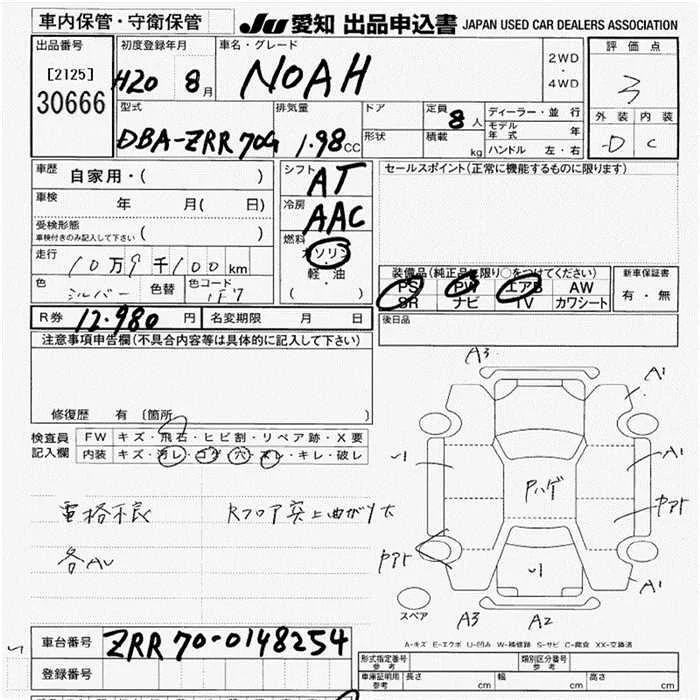 車内保管・守衛保管
JU 愛知 出品申込書 JAPAN USED CAR DEALERS ASSOCIATION
出品番号
[2125]
30666
初度登録年月
H20 8月
車名・グレード
NOAH
2WD
・
4WD
評価点
3
外装 内装
D C
型式
DBA-ZRR70G
排気量
1.98CC
ドア
形状
定員 8人
積載 kg
ディーラー・並行
モデル年式 年
ハンドル 左・右
車歴 自家用・( )
車検 年 月( 日)
受検形態
車検付きのみ記入して下さい ( )
走行 10万9千100km
色 シルバー 色替 色コード 1F7
シフト
AT
冷房
AAC
燃料
ガソリン
軽・油
( )
セールスポイント(正常に機能するものに限ります)
装備品(純正品に限り○をつけてください)
PS PW エアB AW
SR ナビ TV カワシート
新車保証書
有・無
R券 12,980 円
名変期限 月 日
後日品
注意事項申告欄(不具合内容等は具体的に記入して下さい)
修復歴 有 〔箇所 〕
検査員記入欄
FW キズ・飛石・ヒビ割・リペア跡・X要
内装 キズ・汚レ・コゲ・穴・スレ・キレ・破レ
電格不良 Rフロア突上曲がり大
各AU
A3
A1
A1
Pハゲ
ヤアト
ヤアト
A1
A3 A2
スペア
A-キズ E-エクボ U-凹み W-補修跡 S-サビ C-腐食 XX-交換済
車台番号 ZRR70-0148254
登録番号
形式指定番号 参考
類別区分番号 参考
車庫証明用 参考 長さ cm 幅 cm 高さ cm